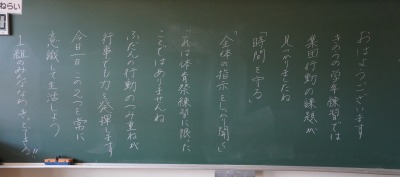 ねらい
おはようございます
きのうの学年練習では
集団行動の課題が
見つかりましたね
「時間を守る」
「全体の指示をしっかり聞く」
これは体育祭練習に限った
ことではありませんね
ふだんの行動のつみ重ねが
行事でも力を発揮します
今日一日 この2つを常に
意識して生活しよう
1組のみんななら